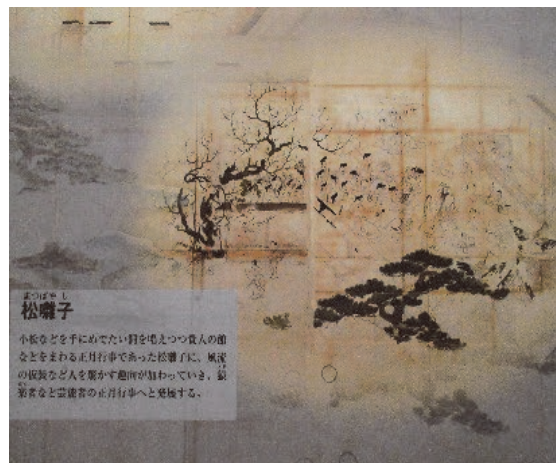 まつばやし
松囃子
小松などを手にめでたい詞を唱えつつ貴人の館
などをまわる正月行事であった松囃子に、風流
の仮装など人を驚かす趣向が加わっていき、猿
楽者など芸能者の正月行事へと発展する。